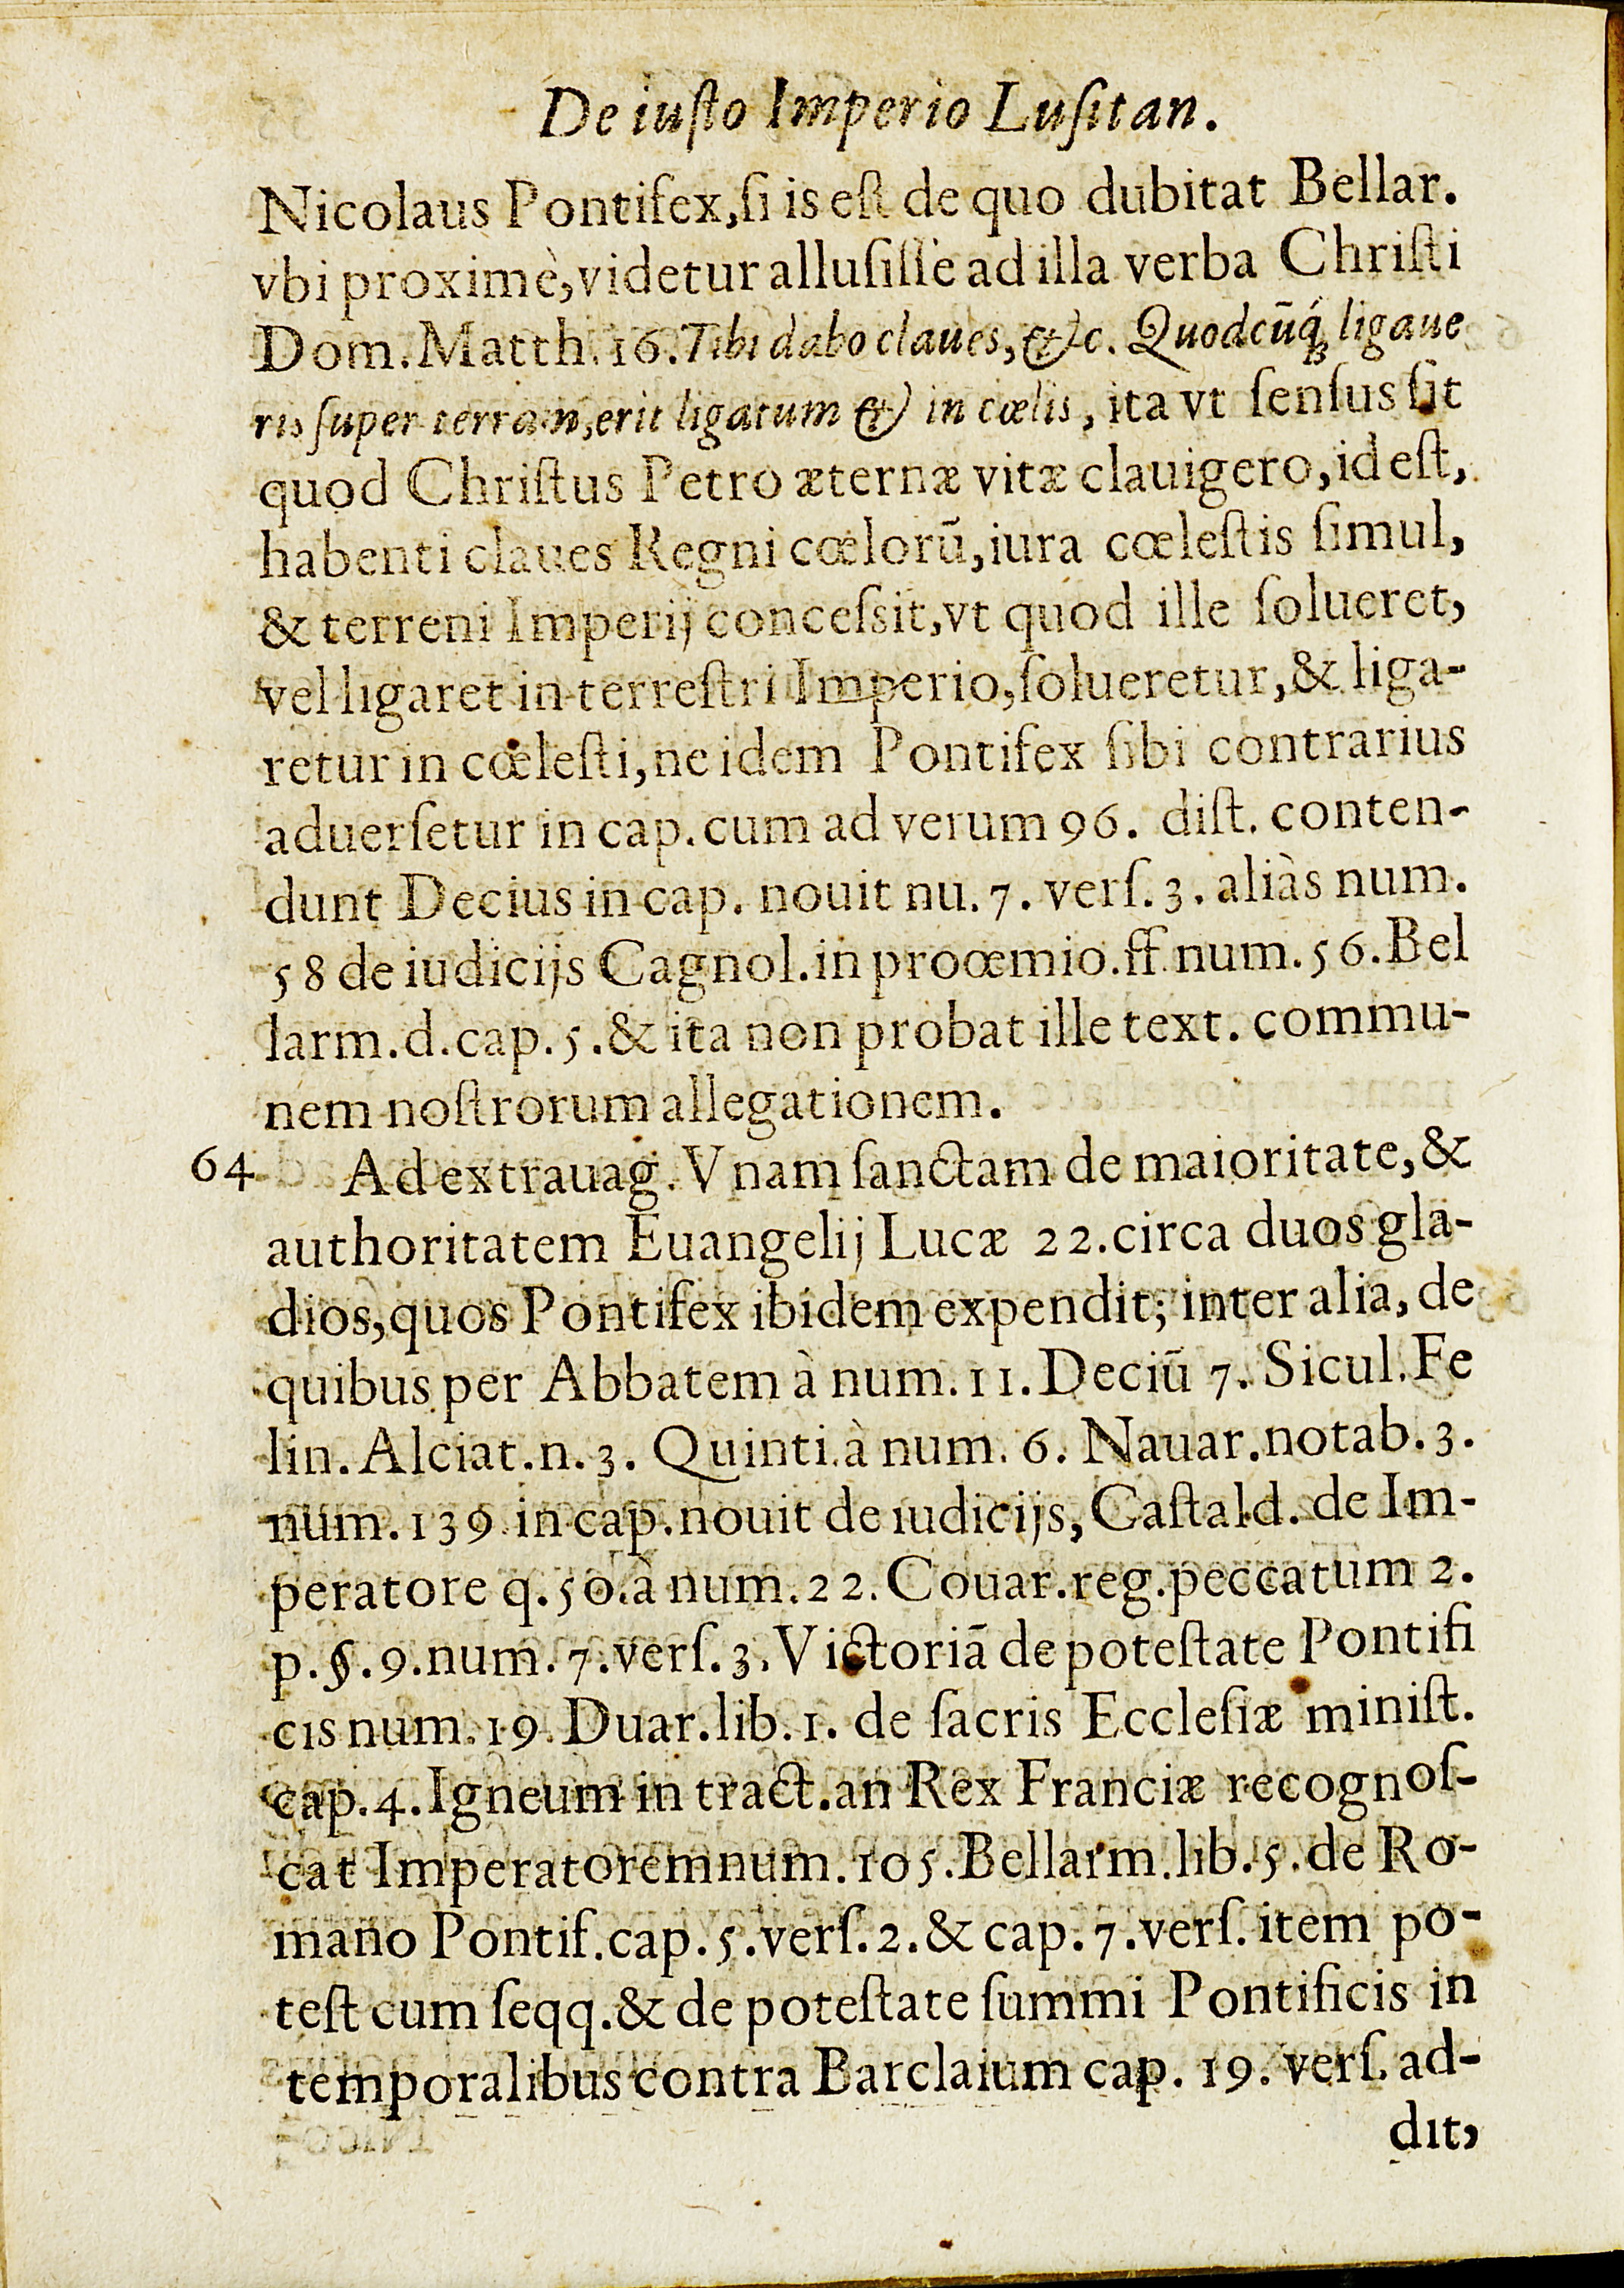 De iuſto Imperio Luſitan.
Nicolaus Pontifex,ſi is eſt de quo dubitat Bellar.
vbi proximè,videtur alluſiſſe ad illa verba Chriſti
Dom.Matth.16.Tibi dabo claues, &c. Quodcūq́; ligaue
ris ſuper terram,erit ligatum & in cœlis, ita vt ſenſus ſit
quod Chriſtus Petro æternæ vitæ clauigero,id eſt,
habenti claues Regni cœlorū,iura cœleſtis ſimul,
& terreni Imperij conceſsit,vt quod ille ſolueret,
vel ligaret in terreſtri Imperio,ſolueretur,& liga-
retur in cœleſti,ne idem Pontifex ſibi contrarius
aduerſetur in cap.cum ad verum 96. diſt. conten-
dunt Decius in cap. nouit nu. 7. verſ. 3. aliàs num.
58 de iudicijs Cagnol.in proœmio.ff. num. 56.Bel
larm.d.cap.5.& ita non probat ille text. commu-
nem noſtrorum allegationem.
64 Ad extrauag. Vnam ſanctam de maioritate,&
authoritatem Euangelij Lucæ 22.circa duos gla-
dios,quos Pontifex ibidem expendit; inter alia, de
quibus per Abbatem à num. 11. Deciū 7. Sicul. Fe
lin. Alciat.n. 3. Quinti.à num. 6. Nauar.notab. 3.
num. 139. in cap.nouit de iudicijs, Caſtald. de Im-
peratore q.50.à num.22. Couar.reg.peccatum 2.
p.§.9.num.7.verſ.3. Victoriā de poteſtate Pontifi
cis num. 19. Duar.lib.1. de ſacris Eccleſiæ miniſt.
cap.4. Igneum in tract.an Rex Franciæ recognoſ-
cat Imperatorem num.105.Bellarm.lib.5.de Ro-
mano Pontif.cap.5.verſ.2.& cap.7.verſ. item po-
teſt cum ſeqq.& de poteſtate ſummi Pontificis in
temporalibus contra Barclaium cap. 19. verſ. ad-
dit,